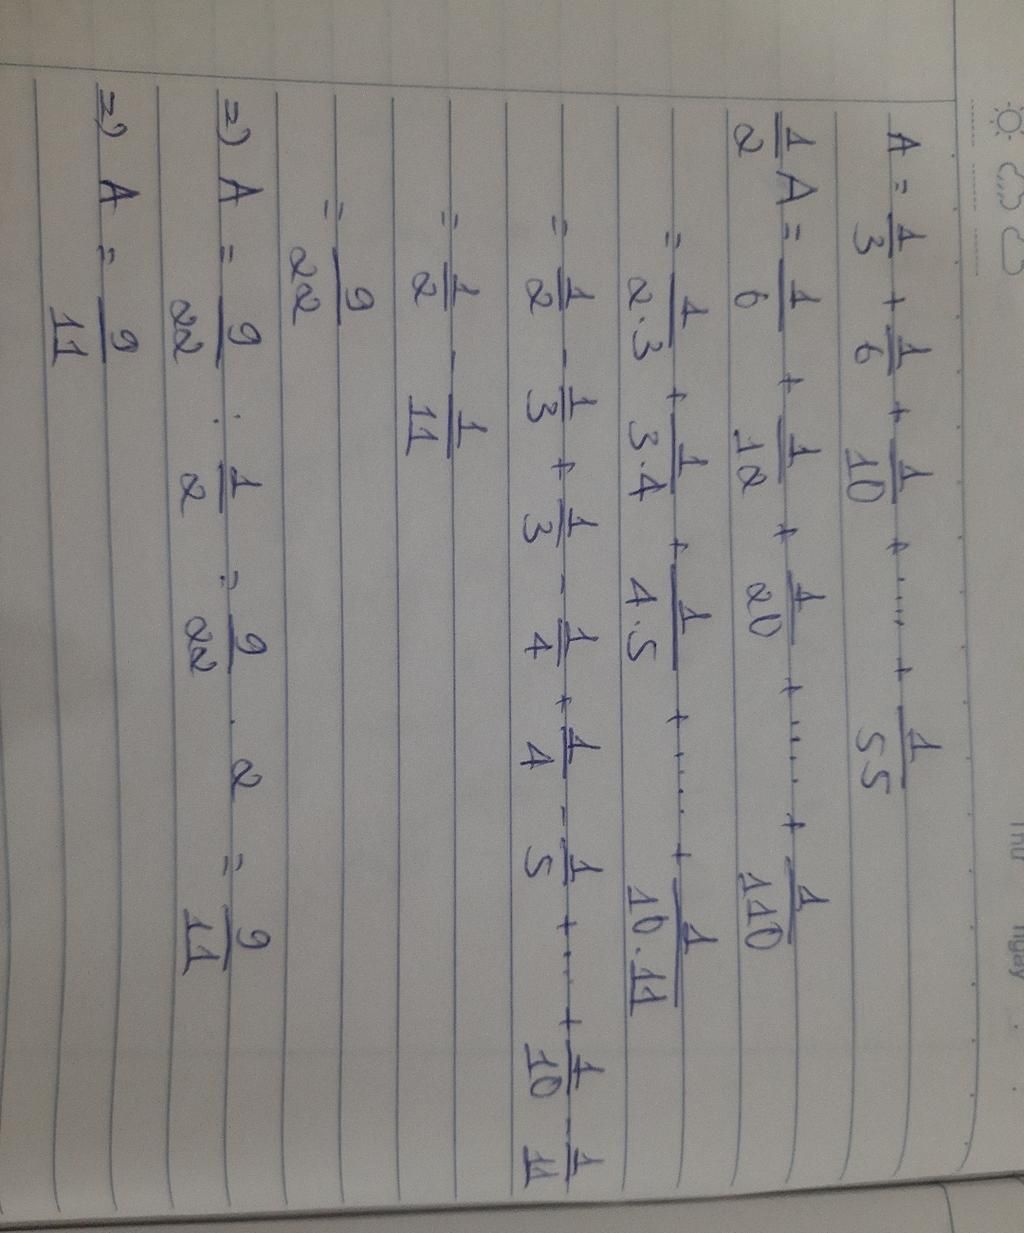 Thứ ngày
A = 1/3 + 1/6 + 1/10 + ..... + 1/55
1/2 A = 1/6 + 1/12 + 1/20 + ..... + 1/110
= 1/2.3 + 1/3.4 + 1/4.5 + ..... + 1/10.11
= 1/2 - 1/3 + 1/3 - 1/4 + 1/4 - 1/5 + .... + 1/10 - 1/11
= 1/2 - 1/11
= 9/22
=) A = 9/22 : 1/2 = 9/22 . 2 = 9/11
=) A = 9/11